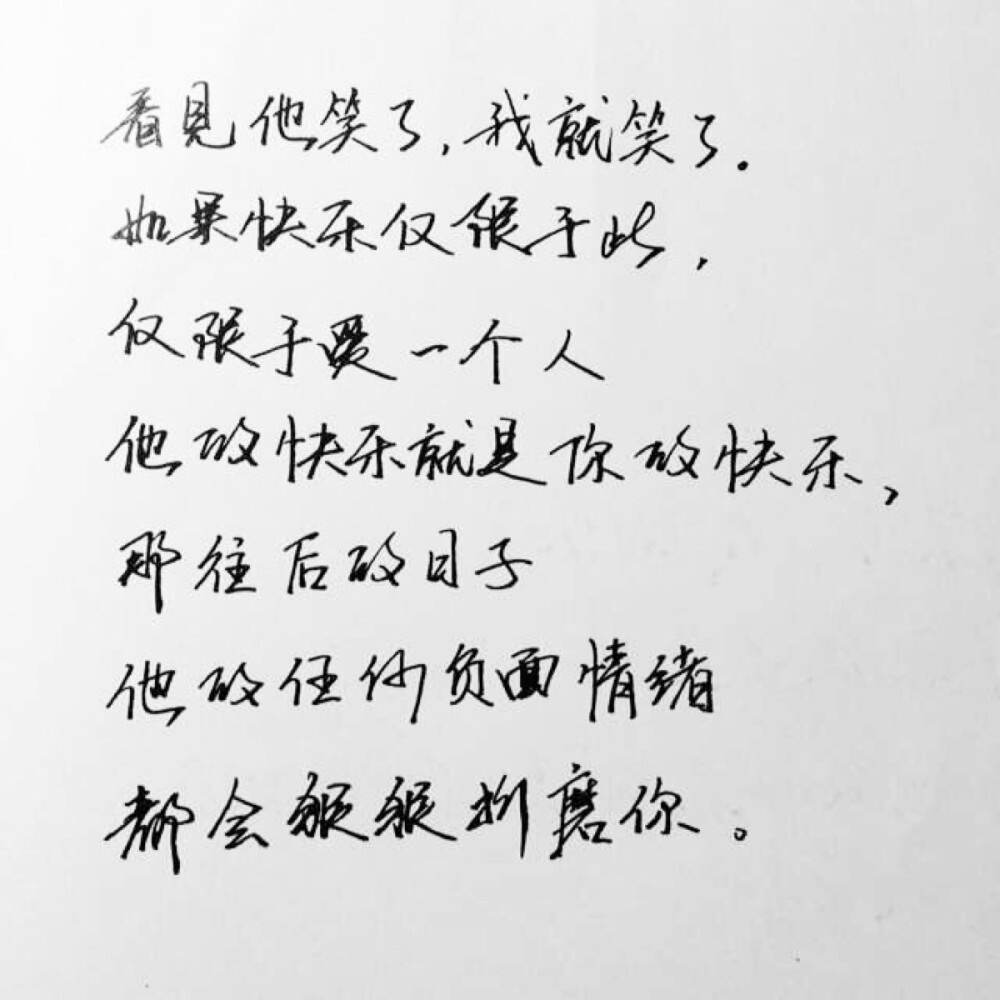 看見他笑了,我就笑了.
如果快乐仅限于此,
仅限于爱一个人
他的快乐就是你的快乐,
那往后的日子
他的任何负面情绪
都会狠狠折磨你。